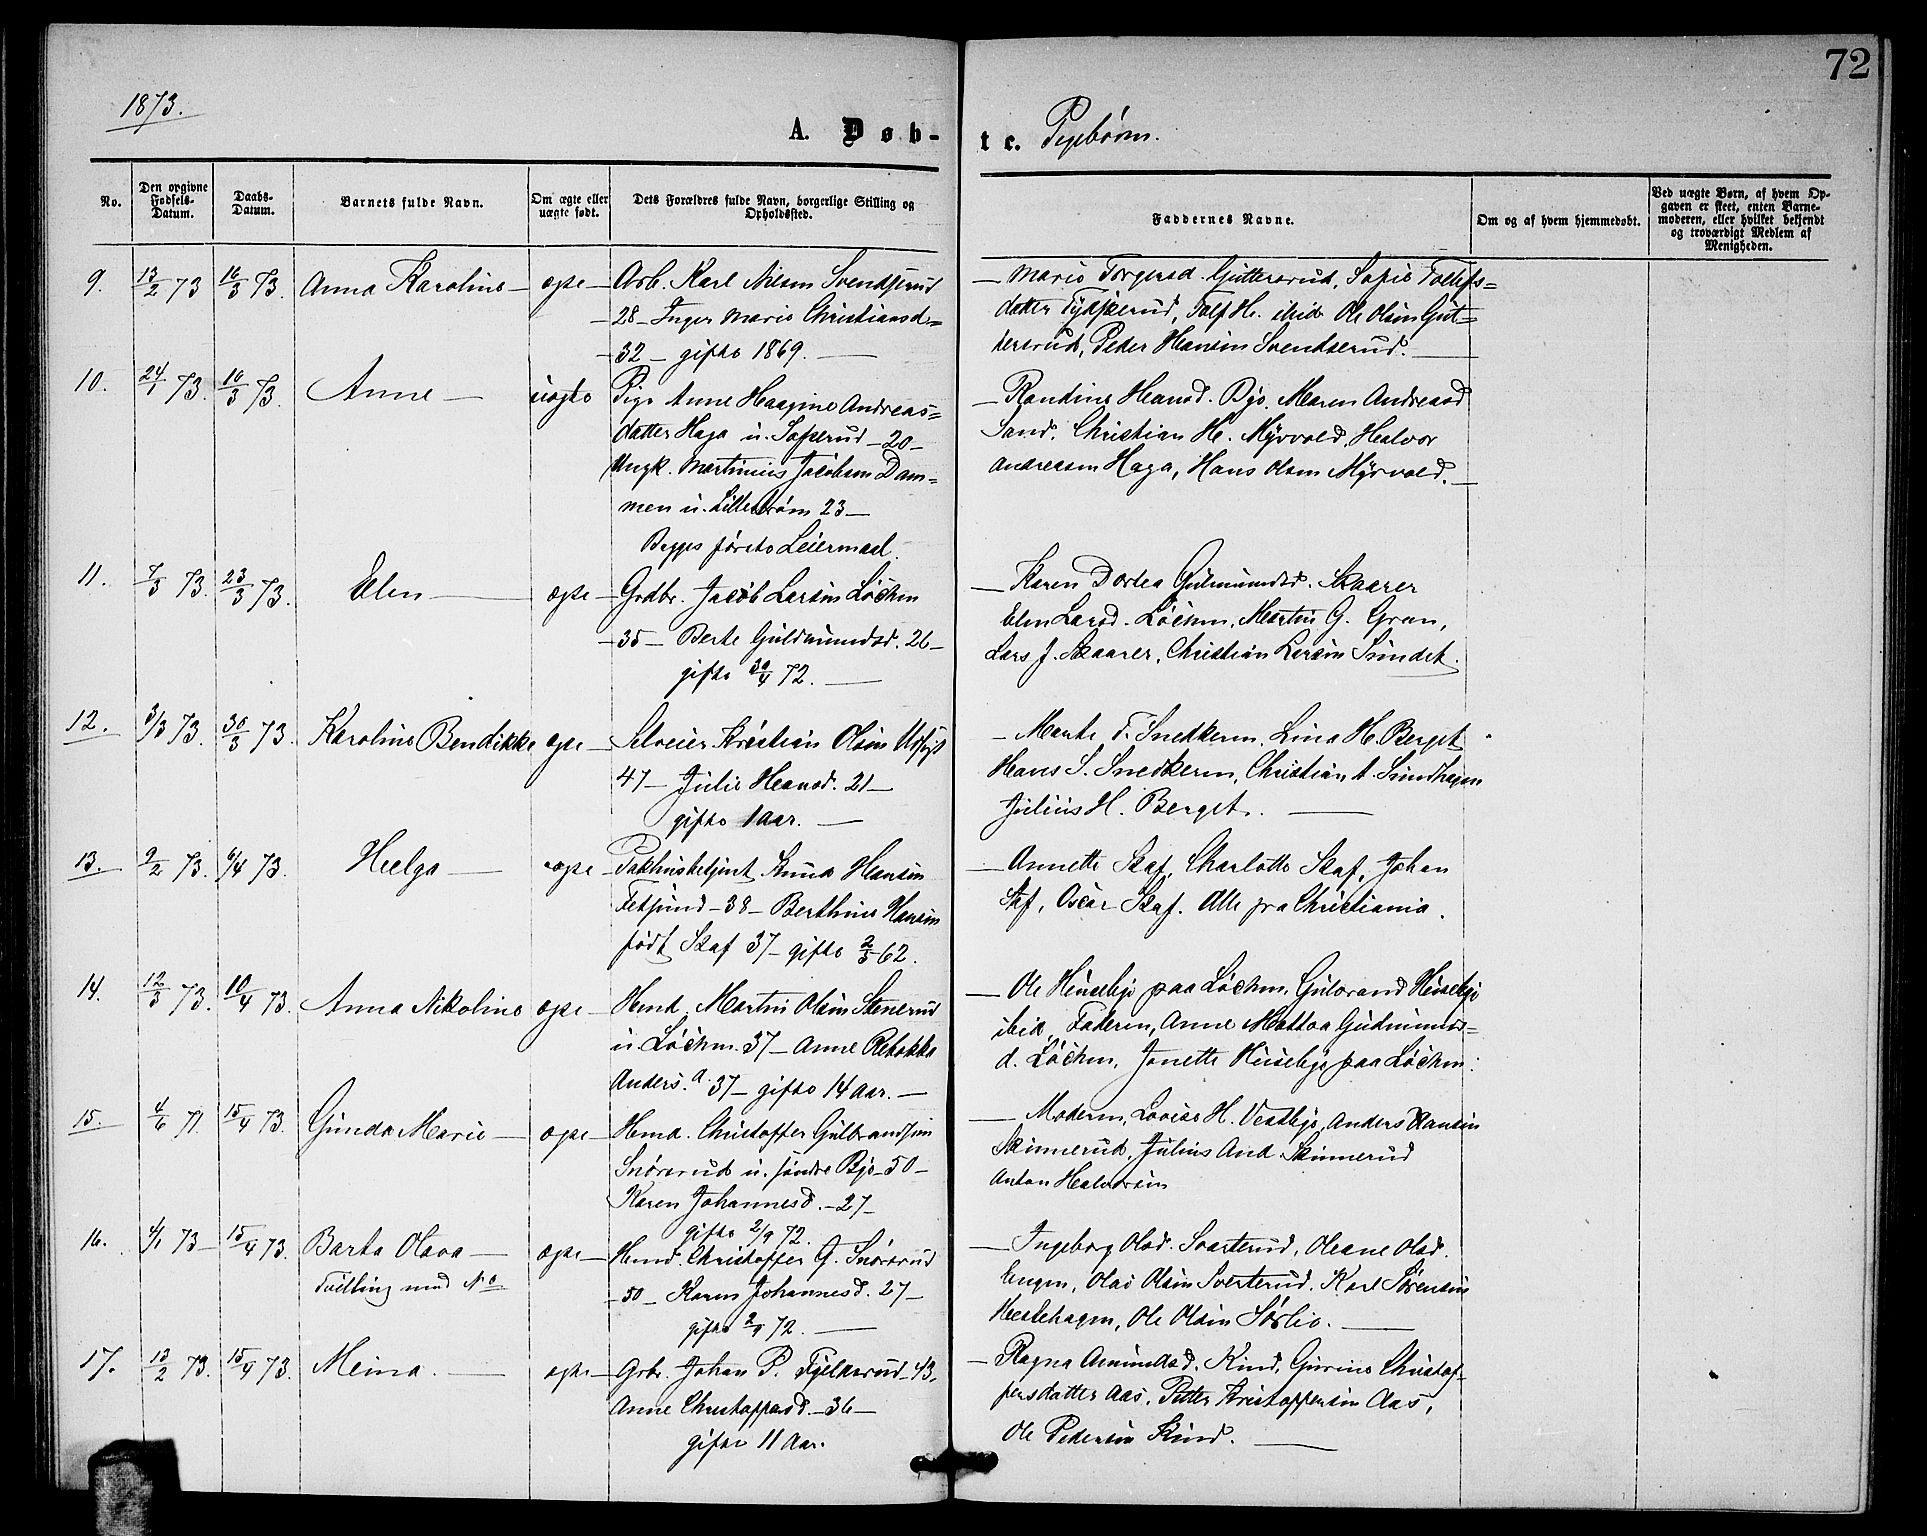 72
1873.
A. Døb-
te. Pigebørn.
No.
Den opgivne Fødsels-Datum.
Daabs-Datum.
Barnets fulde Navn.
Om ægte eller uægte født.
Dets Forældres fulde Navn, borgerlige Stilling og Opholdssted.
Faddernes Navne.
Om og af hvem hjemmedøbt.
Ved uægte Børn, af hvem Opgaven er skeet, enten Barnemoderen, eller hvilket bekjendt og troværdigt Medlem af Menigheden.
9. 13/2 73 16/3 73. Anna Karoline — ægte — Arb. Karl Nilsen Svendserud
28 — Inger Marie Christiansd.
— 32 — gifte 1869. —
— Marie Torgersd. Guttersrud, Sofie Tollefs=
datter Fjeldserud, Tolf H. ibid. Ole Olsen Gut=
tersrud, Peder Hansen Svendserud. —
10. 24/1 73. 16/3 73. Anne — uægte
Pige Anne Haagine Andreas=
datter Haga u. — 20 —
Ungk. Martinius Jacobsen Dam=
men u. Lillestrøm 23 —
Begges første Leiermaal.
— Randine Hansd. Bjø. Maren Andreasd
Sand. Christian H. Myrvold, Halvor
Andreasen Haga, Hans Olsen Myrvold. —
11. 7/3 73. 23/3 73. Elen — ægte — Grdbr. Jacob Larsen Løchen
— 35 — Berte Guldmundsd. 26 —
gifte 30/4 72. —
— Karen Dortea Gulmundsd. Skaarer
Elen Larsd. Løchen, Martin G. Gran,
Lars J. Skaarer, Christian Larsen Sundet.
12. 3/3 73. 30/3 73. Karoline Bendikke ægte — Selveier Kristian Olsen
47 — Julie Hansd. 21 —
gifte 1 Aar. —
— Marte T. Snedkeren, Lina H. Berget
Hans S. Snedkeren, Christian A. Sundhagen
Julius H. Berget. —
13. 9/2 73. 6/4 73. Helga — ægte — Pakhusbetjent Knud Hansen
Fetsund — 38 — Berthine Hansen
født Skaf 37 — gifte 2/3 62.
— Annette Skaf, Charlotte Skaf, Johan
Skf, Oscar Skaf. Alle fra Christiania.
14. 12/3 73. 10/4 73. Anna Nikoline ægte — Hmd. Martin Olsen Stenerud
u. Løchen. 37 — Anne Rebekka
Anders. d. 37 — gifte 14 Aar. —
— Ole Huseby paa Løchen, Gulbrand Huseby
ibid, Faderen, Anne Mattea Gudmunds=
d. Løchen, Jonette Huseby paa Løchen.
15. 4/6 71. 15/4 73. Gunda Marie — ægte — Hmd. Christoffer Gulbrandsen
Snørerud u. søndre Bjø — 50 —
Karen Johannesd. — 27 —
gifte 2/9 72.
— Moderen, Lovise H. Vestby, Anders Hansen
Skinnerud, Julius And. Skinnerud
Anton Halvorsen
16. 4/1 73 — 15/4 73. Barta Olava — ægte — Hmd. Christoffer G. Snørerud
Tvilling med No
— 50 — Karen Johannesd. 27 —
gifte 2/9 72. —
— Ingeborg Olsd. Svarterud, Oleane Olsd.
Engen, Olav Olsen Svarterud, Karl Sørensen
Hestehagen, Ole Olsen Sørlie. —
17. 13/2 73. 15/4 73. Meina. — ægte — Grbr. Johan P. Fjeldserud — 43.
Anne Christoffersd. — 36 —
gifte 11 Aar.
— Ragna Amundsd. Kind, Gurine Christof=
fersdatter Aas, Petter Kristoffersen Aas,
Ole Pedersen Kind. —